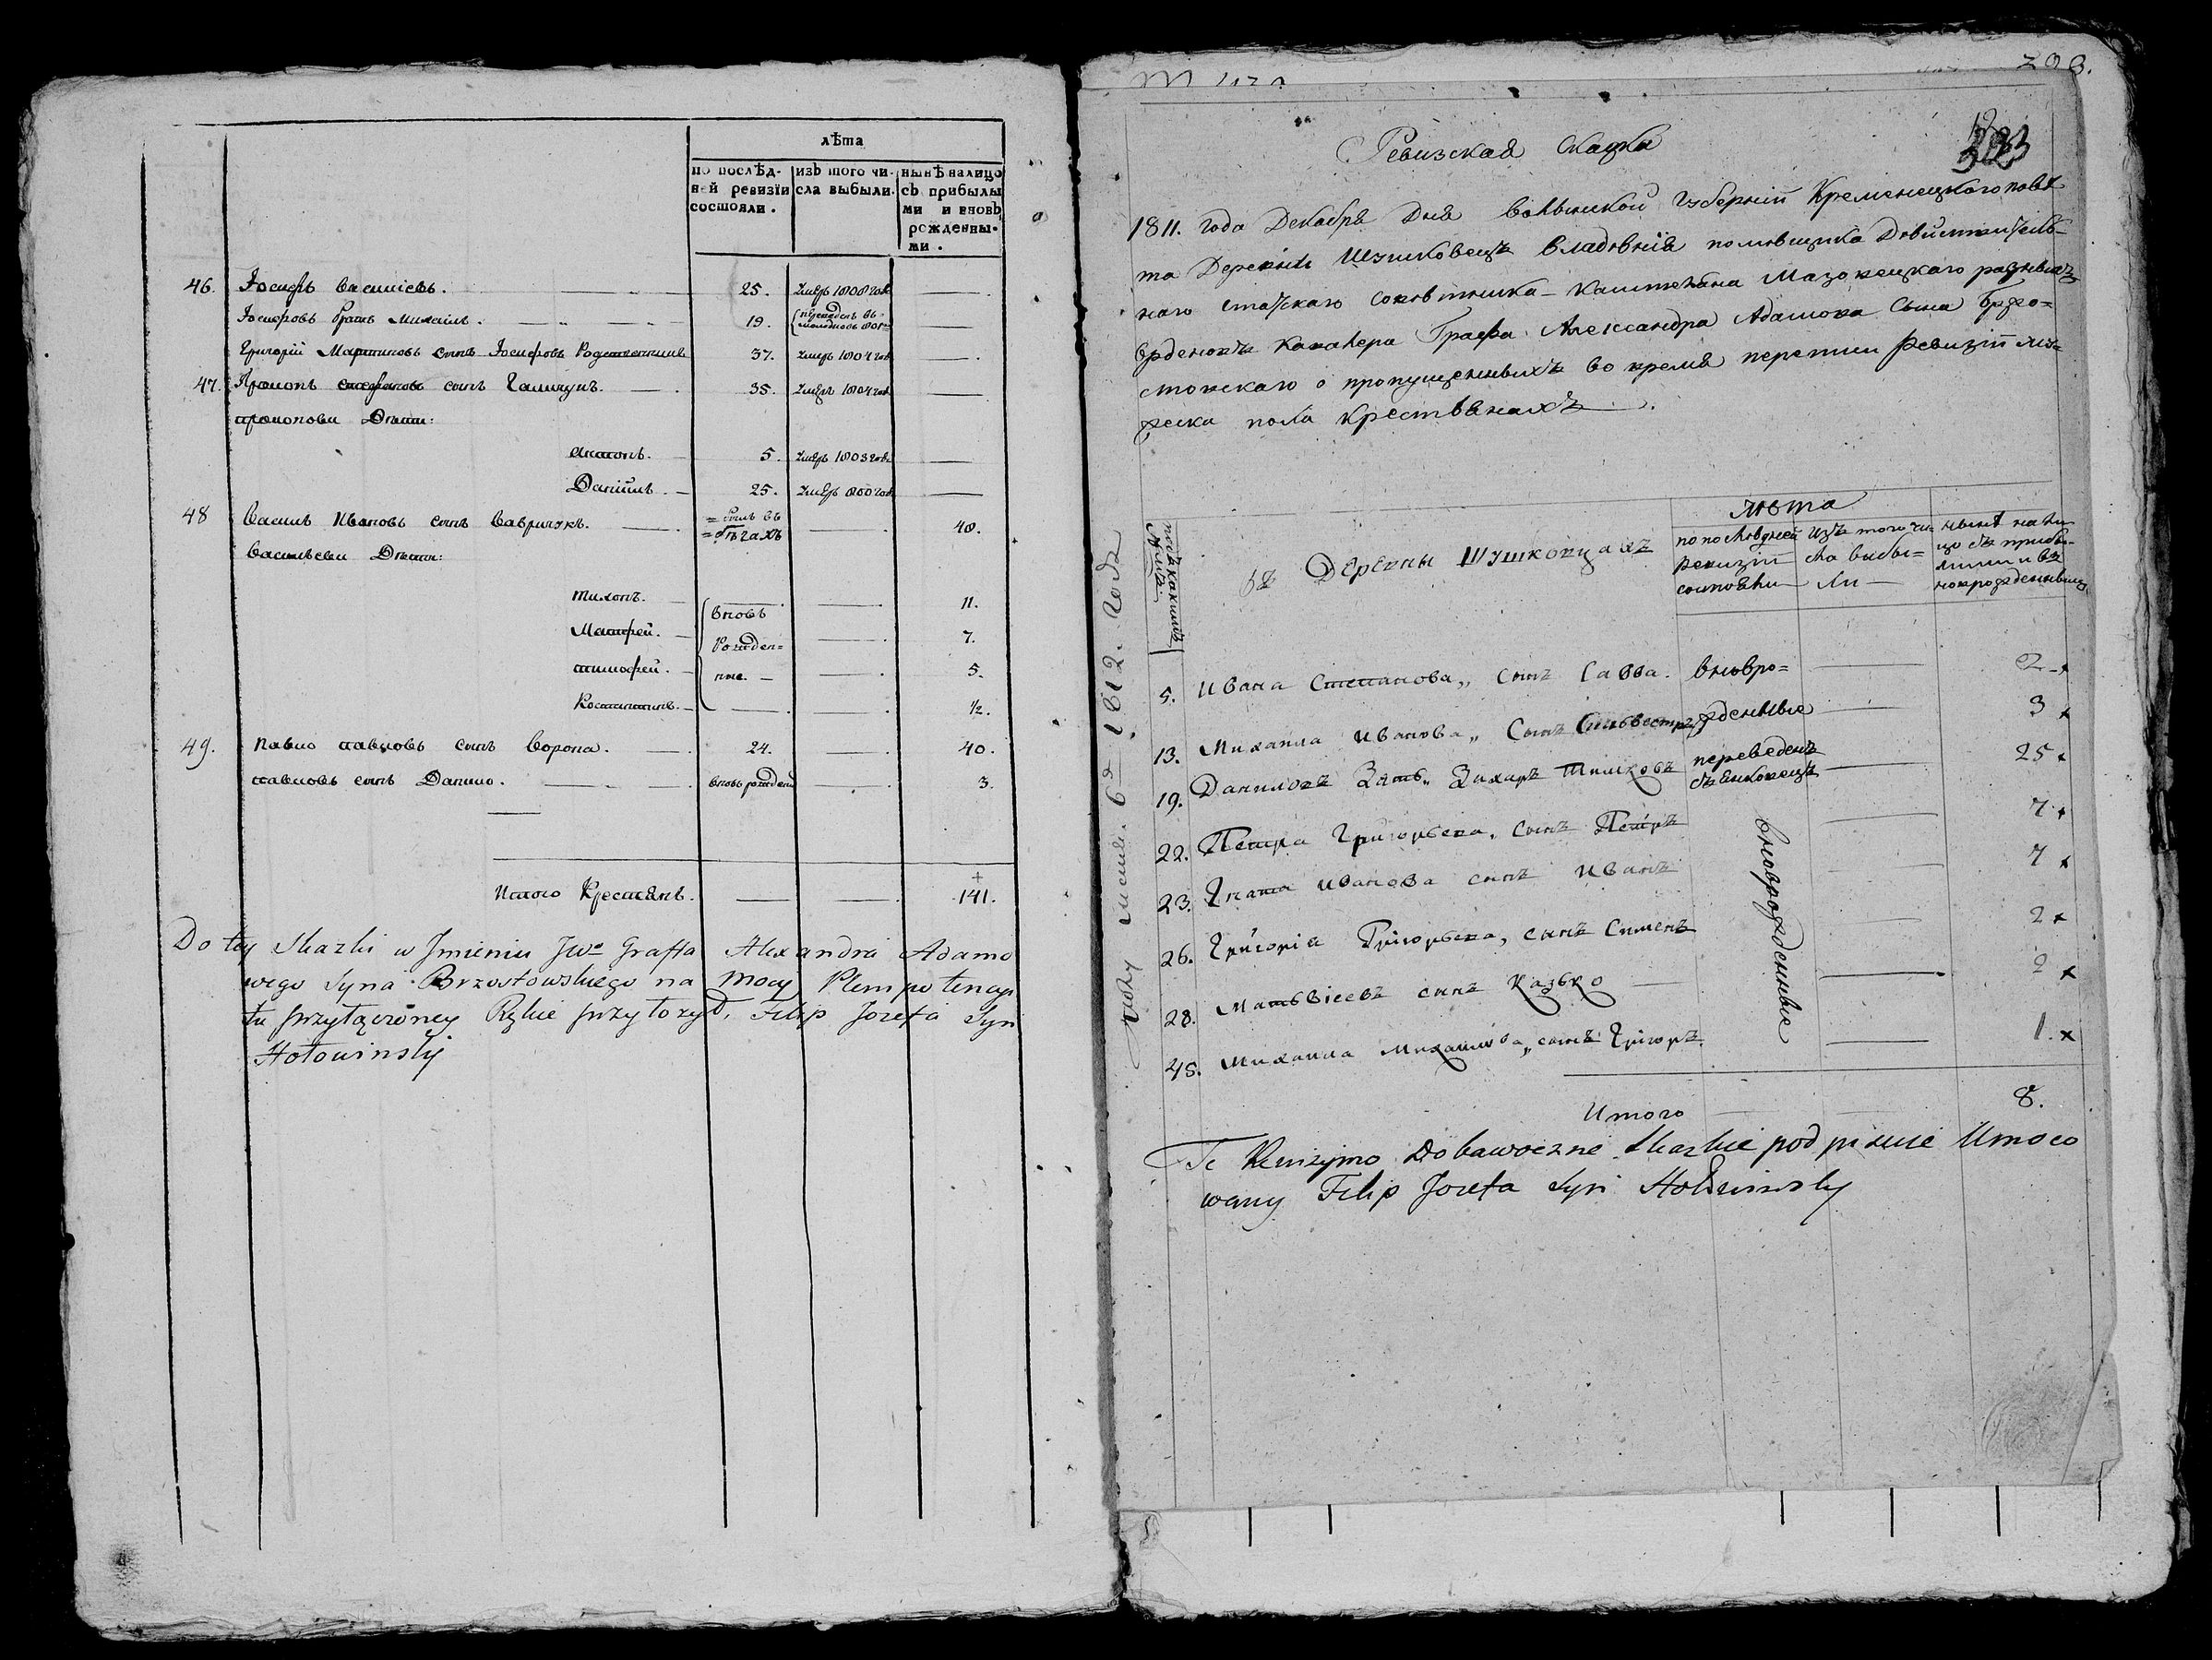 лѣта
по послѣдней ревизіи состояли.
изъ того числа выбыли.
нынѣ налицо съ прибылыми и вновь рожденными.
46. Іосифъ Василіевъ. 25. умеръ 1808 года
Іосифовъ братъ Михаилъ. 19.
Григорій Мартиновъ сынъ Іосифовъ Родственникъ 37. умеръ 1804 года
47. Прокопъ сынъ 35. умеръ 1804 года
прокопови Дѣти:
5. умеръ 1803 года
Даніилъ. 25. умеръ 1800 года
48 Василь Ивановъ сынъ Вавринюкъ. = былъ въ = бѣгахъ 40.
Васильеви Дѣти:
Тихонъ. 11.
Матфей. вновь Рожден= ные. 7.
тимофей. 5.
Костантинъ. 1/2.
49. Павло павловъ сынъ Ворона. 24. 40.
павловъ сынъ Данило. вновь рожденъ 3.
Итого Крестянъ. 141.
Do tey Skazki w Jmieniu JWo Graffa Alexandra Adamo
wego Syna Brzostowskiego na mocy Plenipotencyi
tu przyłączoney Rękie przyłożył, Filip Jozefa Syn
Hołowinsky
208.
Ревизская сказка
1811. года Декабря Дня Волынской Губерніи Кременецкого повѣ
та Деревни Шушковецъ владѣнія помѣщика Дѣйствитель
наго статскаго совѣтника Каштеляна Мазовецкаго разныхъ
орденовъ Кавалера Графа Александра Адамова сына Бржо=
стовскаго о пропущенныхъ во время переписи ревизіи муж=
еска пола крестьянахъ.
подъ какимъ №мъ.
въ Деревни Шушковцахъ
лѣта
по послѣдней ревизіи состояли
изъ того числа выбы= ли
нынѣ на лицо съ прибылими и вновь рожденныхъ
5. Ивана Степанова, сынъ Савва. вновро= 2
13. Михаила Иванова, Сынъ Силвестръ жденные 3
19. Даниловъ Зять, Захаръ переведенъ 25
22. Петра Григорьева, сынъ Петръ 7
23. Игната Иванова сынъ Иванъ вноврожденные 7
26. Григорія Григорьева, сынъ Сименъ 2
28. Матвіеевъ сынъ Казько 2
45. Михаила Михаилова, сынъ Григоръ. 1.
Итого 8.
Te Rewizyino Dobawoczne Skazkie podpisuie Umoco
wany Filip Jozefa Syn Hołowinsky
6 1812. года